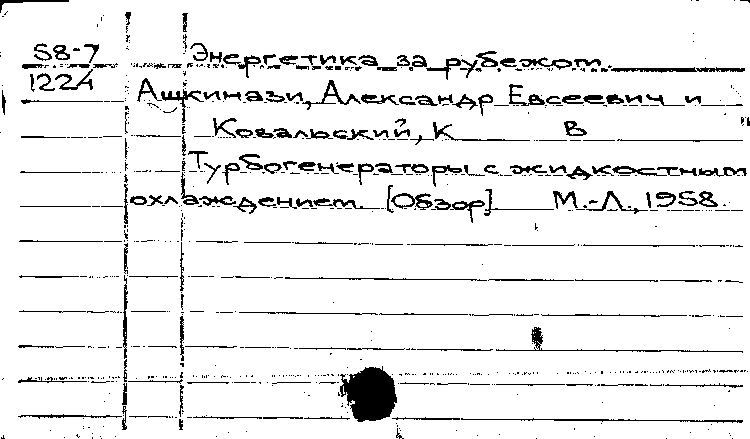 58-7 Энергетика за рубежом.
1224 Ашкинази, Александр Евсеевич и
Ковальский, К В
Турбогенераторы с жидкостным
охлаждением. [Обзор]. М.-Л., 1958.